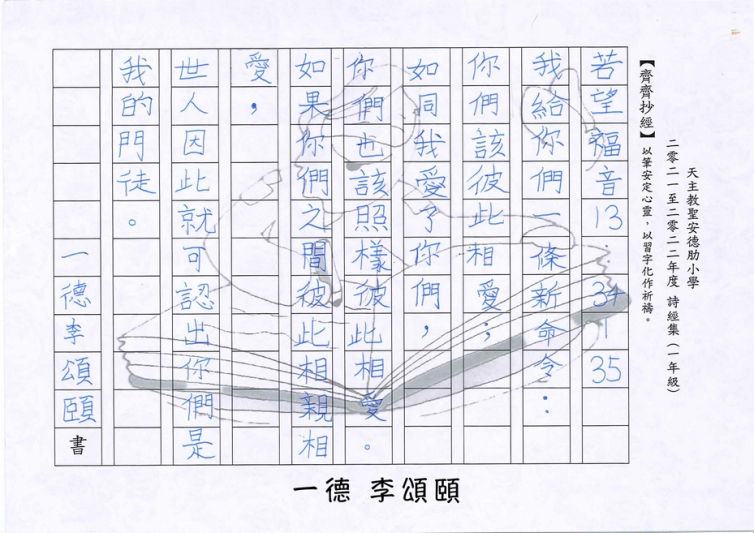 天主教聖安德肋小學
二零二一至二零二二年度 詩經集(一年級)
【齊齊抄經】以筆安定心靈，以習字化作祈禱。
若望福音13:34-35
我給你們一條新命令:
你們該彼此相愛;
如同我愛了你們,
你們也該照樣彼此相愛。
如果你們之間彼此相親相
愛,
世人因此就可認出你們是
我的門徒。
一德李頌頤書
一德 李頌頤